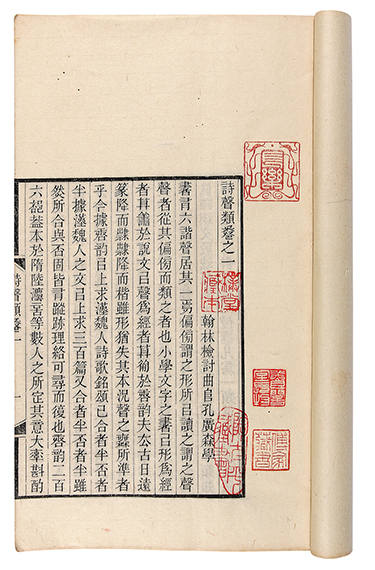 詩聲類卷之一
翰林檢討曲𨸏孔廣森學
書有六諧聲居其一焉偏㑄謂之形所㠯讀之謂之聲
聲者從其偏㑄而類之者也小學文字之書㠯形爲經
者莫善於說文㠯聲爲經者莫𤰈於唐韵夫去古日遠
篆降而隸隸降而楷雖形猶失其本況聲之所準者
乎合據唐韵㠯上求漢魏人詩歌銘頌已合者半否者
半據漢魏人之文㠯上求三百篇又合者半否者半雖
然所合與否固皆有蹤跡理絡可尋而復也唐韵二百
六部蓋本於隋陸灋言等數人之所定其意大率斟酌
詩聲類卷一
一
藏書